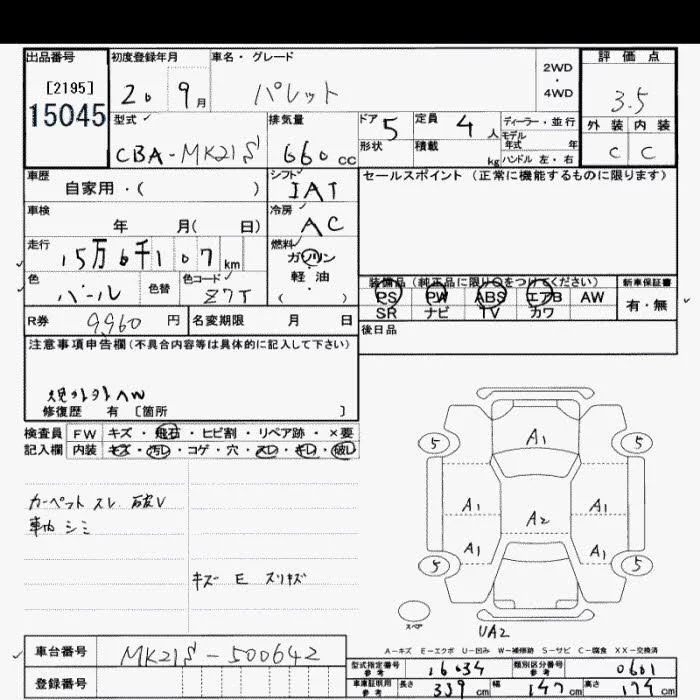 出品番号 初度登録年月 車名・グレード 評価点
[2195] 2WD
15045 20 9月 パレット ・ 3.5
4WD
型式 排気量 ドア 5 定員 4人 ディーラー・並行 外装 内装
モデル
CBA-MK21S 660cc 形状 積載 kg 年式 年 C C
ハンドル 左・右
車歴 シフト セールスポイント (正常に機能するものに限ります)
自家用・( ) IAT
車検 冷房
年 月( 日) AC
走行 燃料
15万6千107km ガソリン
色 色替 色コード 軽・油
パール Z7T ( )
装備品 (純正品に限り○をつけてください) 新車保証書
PS PW ABS エアB AW 有・無
SR ナビ TV カワ
R券 9960円 名変期限 月 日 後日品
注意事項申告欄(不具合内容等は具体的に記入して下さい)
修復歴 有 [箇所 ]
検査員 FW キズ・飛石・ヒビ割・リペア跡・×要
記入欄 内装 キズ・汚レ・コゲ・穴・スレ・キレ・破レ
カーペット スレ 破レ
車内 シミ
キズ E スリキズ
5 A1 5
A1 A1
A2
A1 A1
5 5
スペア
UA2
A-キズ E-エクボ U-凹み W-補修跡 S-サビ C-腐食 XX-交換済
車台番号 MK21S-500642
型式指定番号 参考 16034 類別区分番号 参考 0601
登録番号
車庫証明用 参考 長さ 339cm 幅 147cm 高さ 174cm